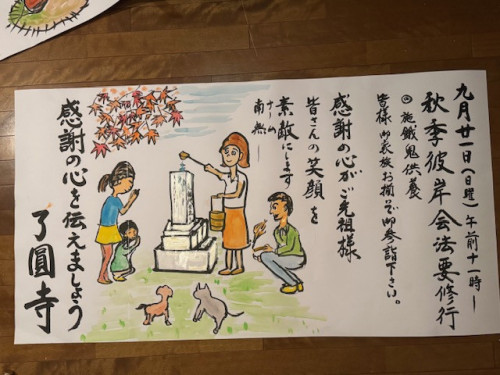 九月廿一日(日曜)午前十一時ー
秋季彼岸会法要修行
◎施餓鬼供養
皆様御家族お揃で御参詣下さい。
感謝の心がご先祖様
皆さんの笑顔を
素敵にします
南無ー
感謝の心を伝えましょう
了圓寺